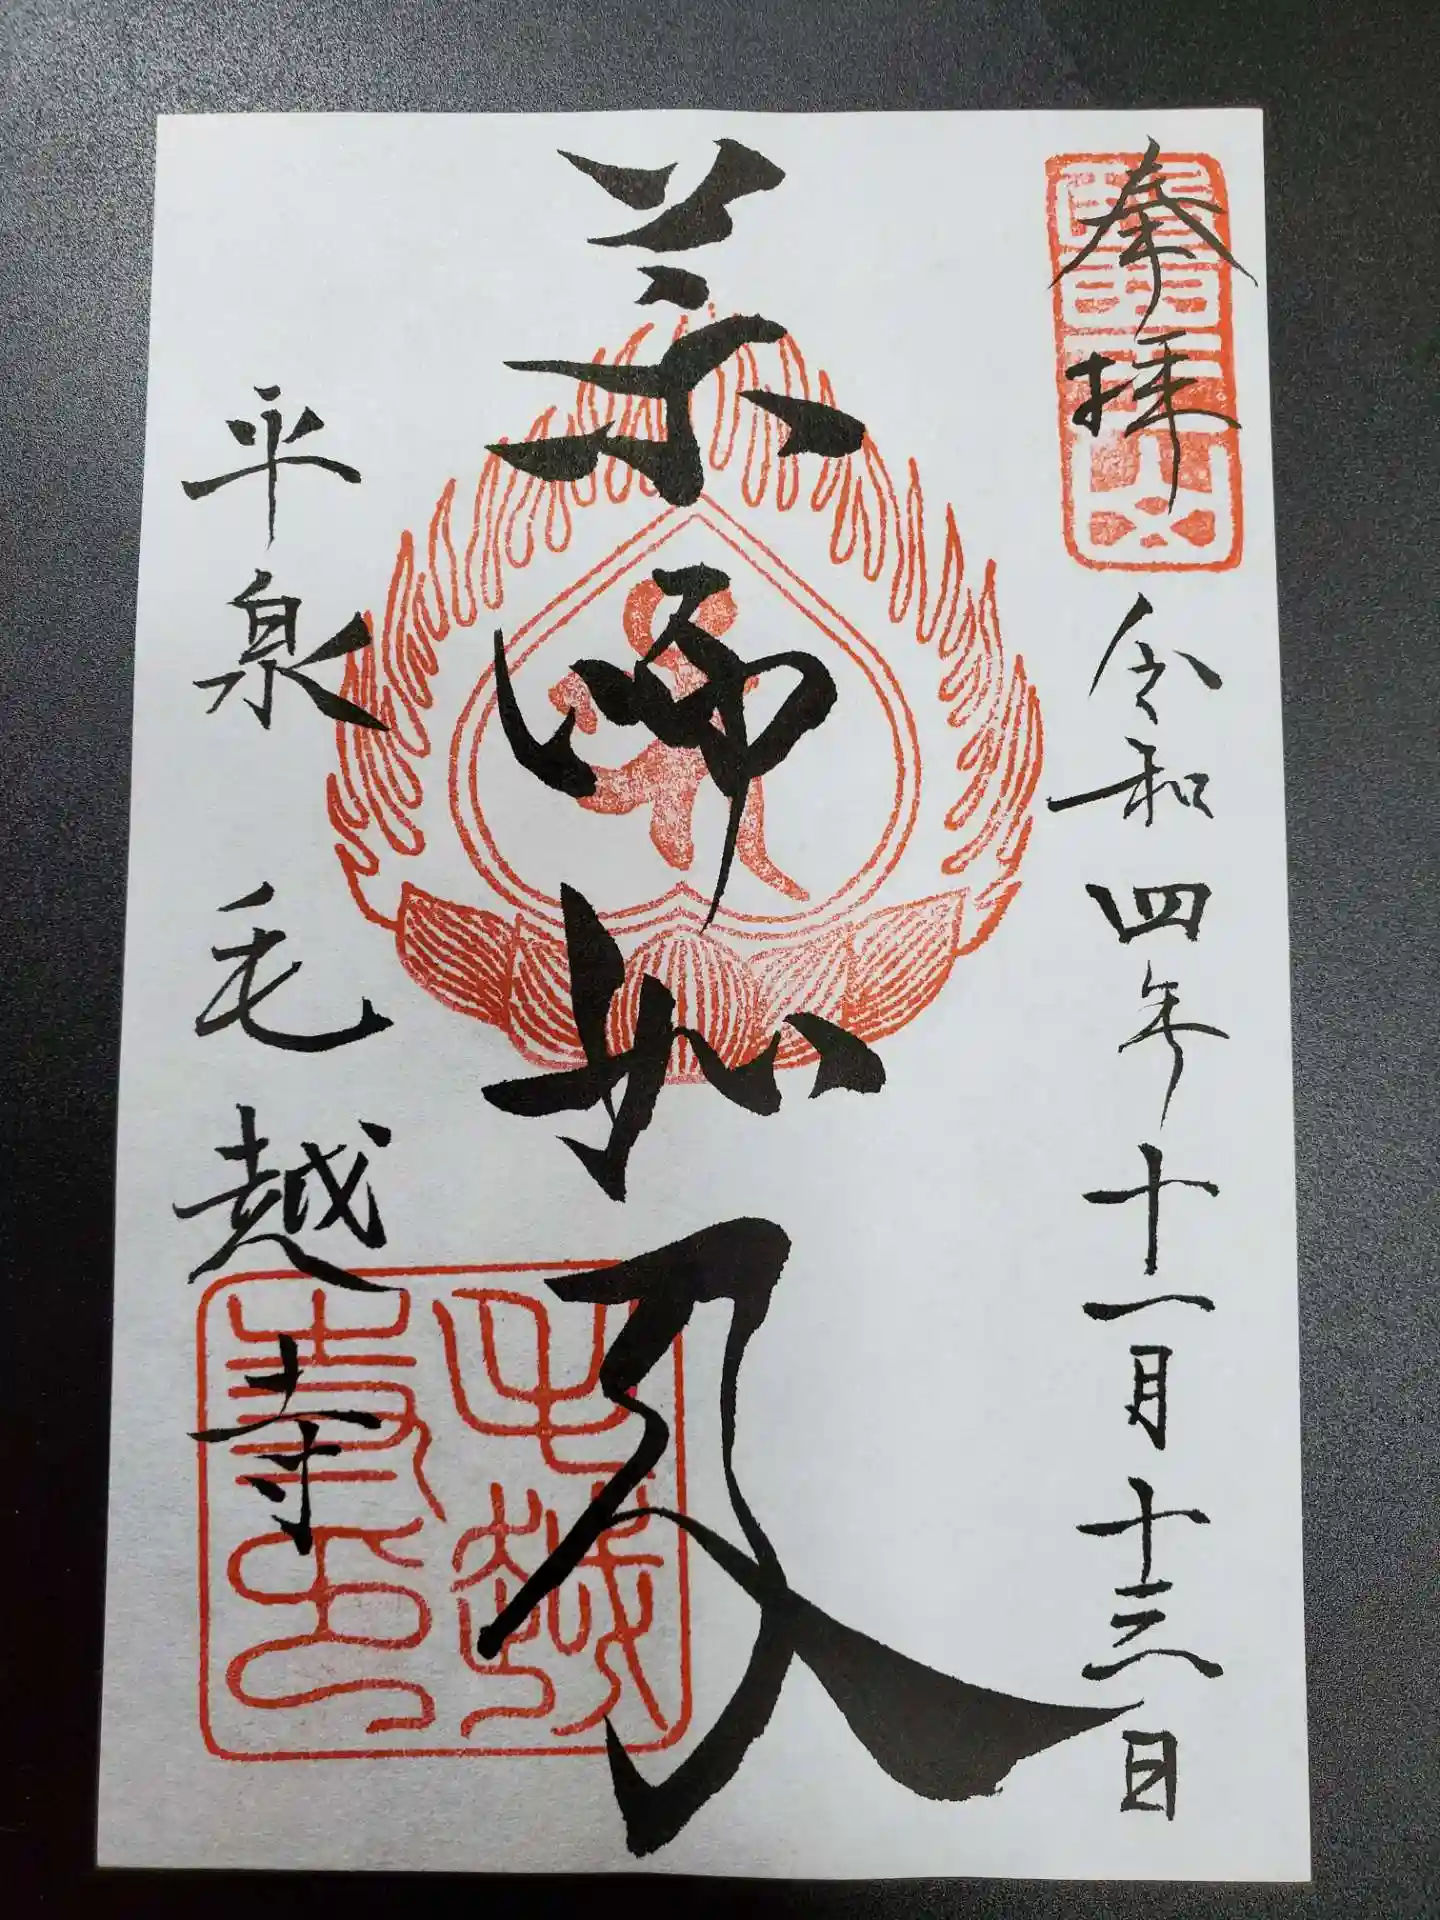 奉拝
醫王山
令和四年十一月十三日
薬師如来
平泉 毛越寺
毛越寺印